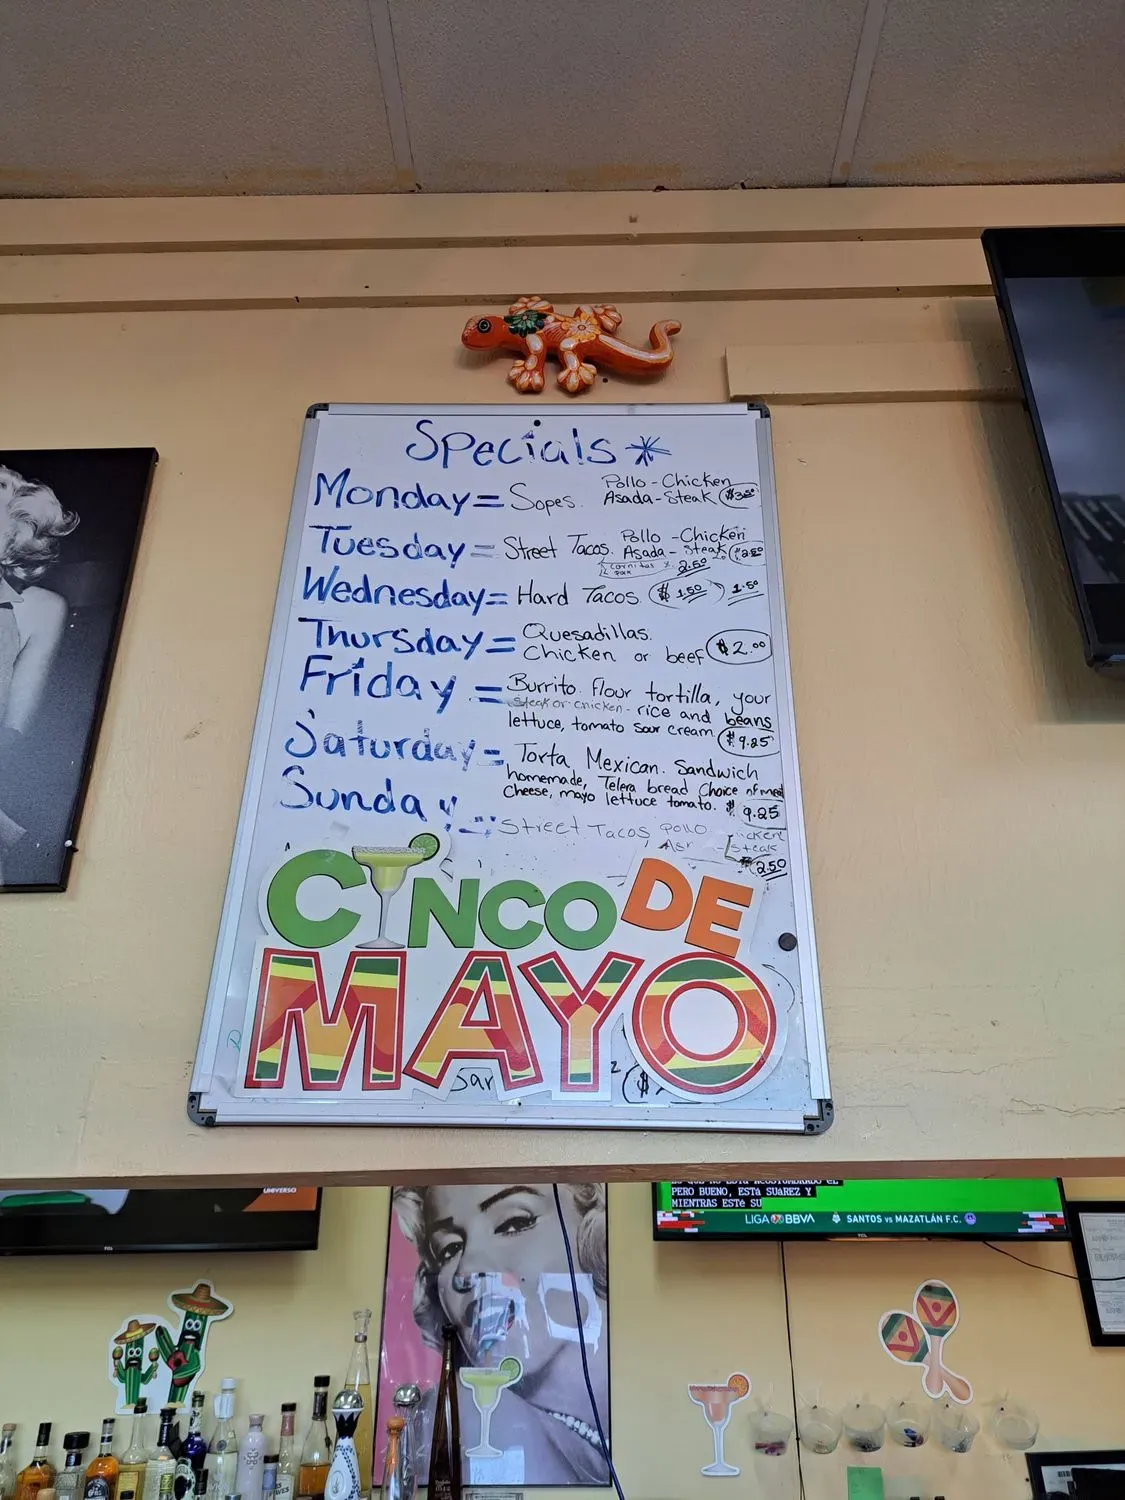 Specials*
Monday = Sopes. Pollo - Chicken
Asada - Steak $3.00
Tuesday = Street Tacos. Pollo - Chicken
Asada - Steak $2.50
Carnitas 2.50
Wednesday = Hard Tacos. $1.50 1.50
Thursday = Quesadillas.
Chicken or beef $2.00
Friday = Burrito. flour tortilla, your
steak or chicken - rice and beans
lettuce, tomato sour cream. $9.25
Saturday = Torta Mexican. Sandwich
homemade, Telera bread Choice of meat
cheese, mayo lettuce tomato. $9.25
Sunday = Street Tacos Pollo
steak
2.50
CINCO DE
MAYO
Sar
$
UNIVERSO
TCL
PERO BUENO, ESTá SUáREZ Y
MIENTRAS ESTé SU
LIGA BBVA SANTOS vs MAZATLÁN F.C.
TCL